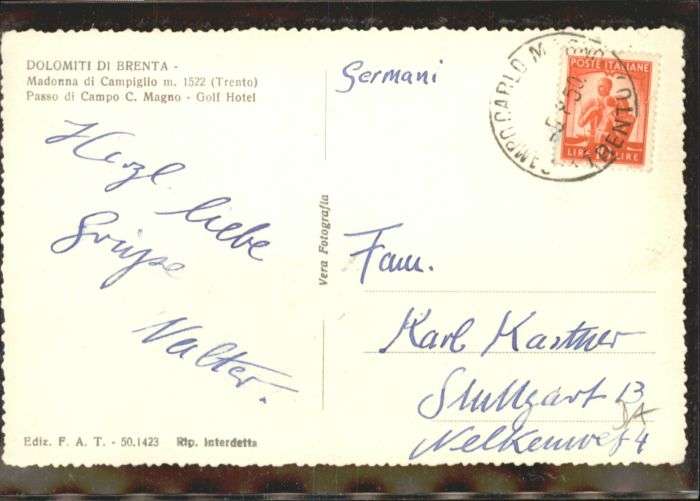 DOLOMITI DI BRENTA -
Madonna di Campiglio m. 1522 (Trento)
Passo di Campo C. Magno - Golf Hotel
Herzl. liebe
Grüße
Walter.
Ediz. F. A. T. - 50.1423 Rip. Interdetta
Vera Fotografia
Germani
POSTE ITALIANE
LIRE LIRE
CAMPO CARLO MAGNO
TRENTO
Fam.
Karl Kastner
Stuttgart 13
Nelkenweg 4